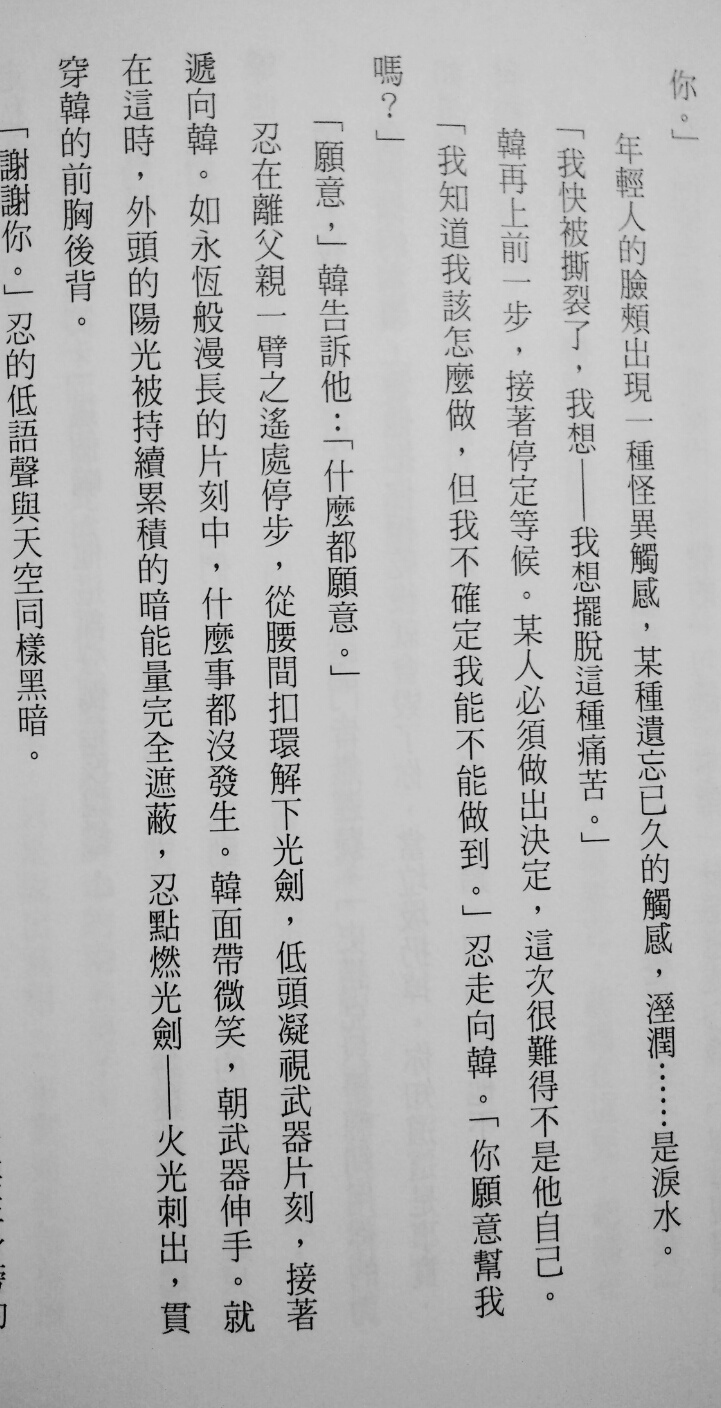 你。」
年輕人的臉頰出現一種怪異觸感，某種遺忘已久的觸感，溼潤……是淚水。
「我快被撕裂了，我想——我想擺脫這種痛苦。」
韓再上前一步，接著停定等候。某人必須做出決定，這次很難得不是他自己。
「我知道我該怎麼做，但我不確定我能不能做到。」忍走向韓。「你願意幫我
嗎？」
「願意，」韓告訴他：「什麼都願意。」
忍在離父親一臂之遙處停步，從腰間扣環解下光劍，低頭凝視武器片刻，接著
遞向韓。如永恆般漫長的片刻中，什麼事都沒發生。韓面帶微笑，朝武器伸手。就
在這時，外頭的陽光被持續累積的暗能量完全遮蔽，忍點燃光劍——火光刺出，貫
穿韓的前胸後背。
「謝謝你。」忍的低語聲與天空同樣黑暗。